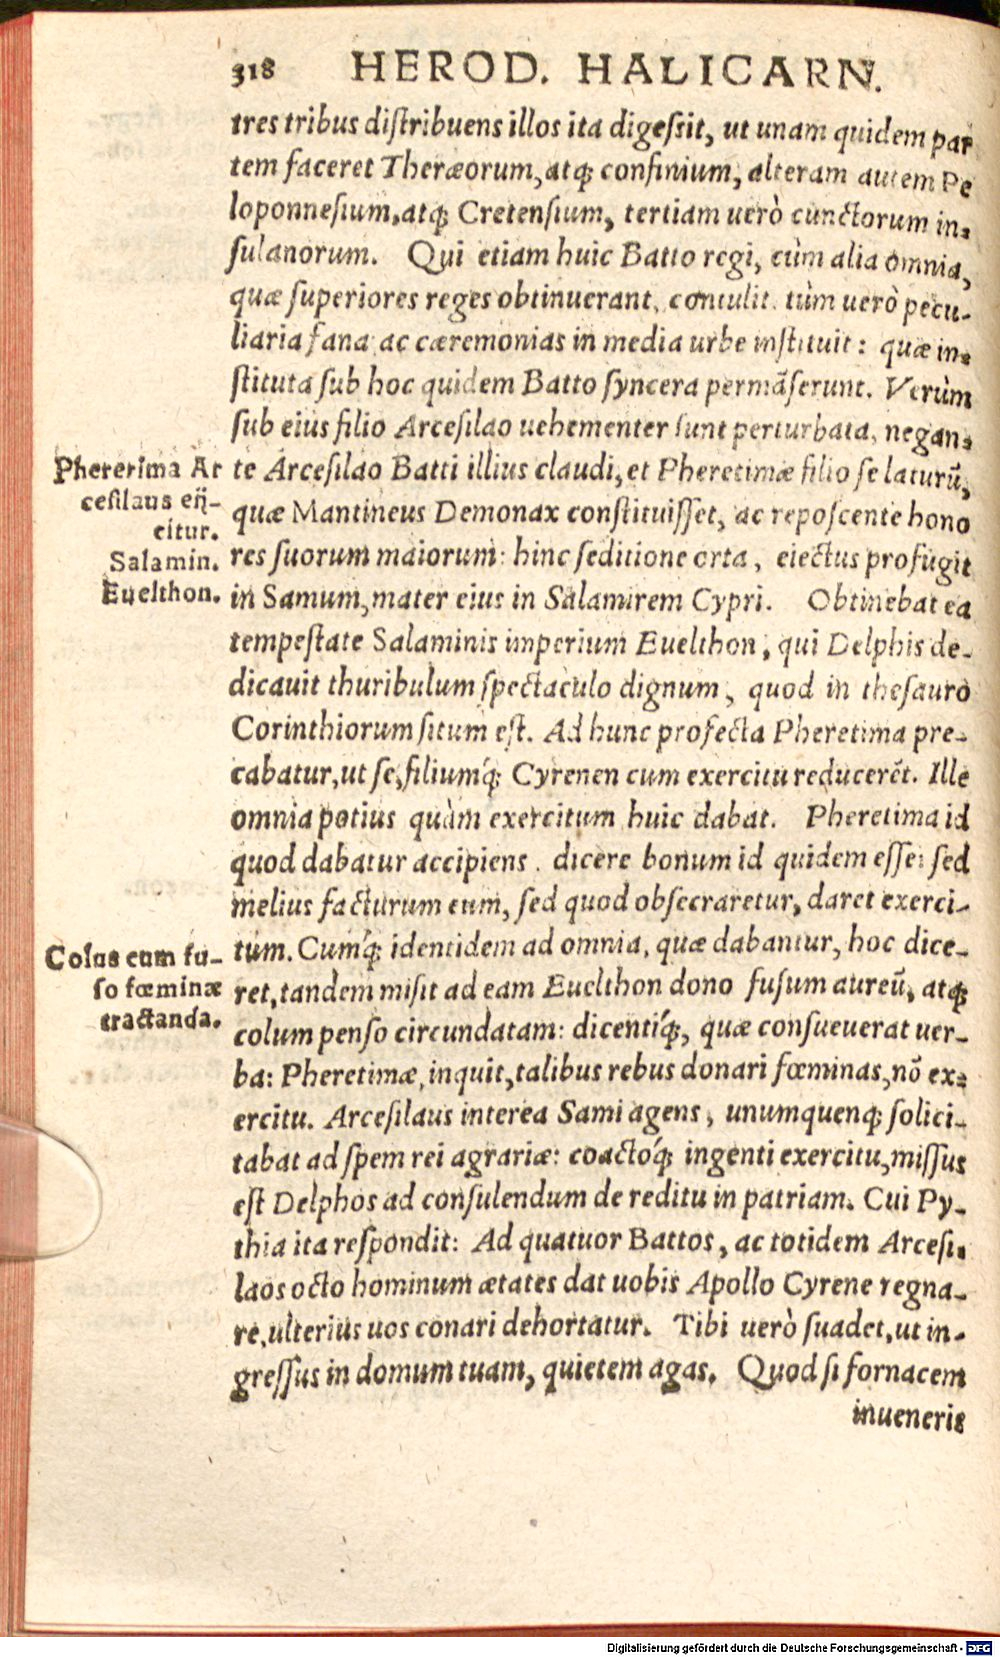 318 HEROD. HALICARN.
tres tribus diſtribuens illos ita digeſsit, ut unam quidem par
tem faceret Theræorum, atq; confinium, alteram autem Pe
loponneſium, atq; Cretenſium, tertiam uerò cunctorum in-
ſulanorum. Qui etiam huic Batto regi, cùm alia omnia,
quæ ſuperiores reges obtinuerant, contulit. tùm uerò pecu-
liaria fana ac cæremonias in media urbe inſtituit: quæ in-
ſtituta ſub hoc quidem Batto ſyncera permãſerunt. Verùm
ſub eius filio Arceſilao uehementer ſunt perturbata, negan-
te Arceſilao Batti illius claudi, et Pheretimæ filio ſe laturũ,
quæ Mantineus Demonax conſtituiſſet, ac repoſcente hono
res ſuorum maiorum: hinc ſeditione orta, eiectus profugit
in Samum, mater eius in Salaminem Cypri. Obtinebat ea
tempeſtate Salaminis imperium Euelthon, qui Delphis de-
dicauit thuribulum ſpectaculo dignum, quod in theſauro
Corinthiorum ſitum eſt. Ad hunc profecta Pheretima pre-
cabatur, ut ſe, filiumq́; Cyrenen cum exercitu reduceret. Ille
omnia potius quàm exercitum huic dabat. Pheretima id
quod dabatur accipiens. dicere bonum id quidem eſſe: ſed
melius facturum eum, ſed quod obſecraretur, daret exerci-
tum. Cumq́; identidem ad omnia, quæ dabantur, hoc dice-
ret, tandem miſit ad eam Euelthon dono fuſum aureũ, atq;
colum penſo circundatam: dicentiq́;, quæ conſueuerat uer-
ba: Pheretimæ, inquit, talibus rebus donari fœminas, nõ ex-
ercitu. Arceſilaus interea Sami agens, unumquenq; ſolici-
tabat ad ſpem rei agrariæ: coactoq́; ingenti exercitu, miſſus
eſt Delphos ad conſulendum de reditu in patriam. Cui Py-
thia ita reſpondit: Ad quatuor Battos, ac totidem Arceſi-
laos octo hominum ætates dat uobis Apollo Cyrene regna-
re, ulterius uos conari dehortatur. Tibi uerò ſuadet, ut in-
greſſus in domum tuam, quietem agas. Quod ſi fornacem
inueneris
Pheretima Ar
ceſilaus eij-
citur.
Salamin.
Euelthon.
Colus cum fu-
ſo fœminæ
tractanda.
Digitalisierung gefördert durch die Deutsche Forschungsgemeinschaft - DFG